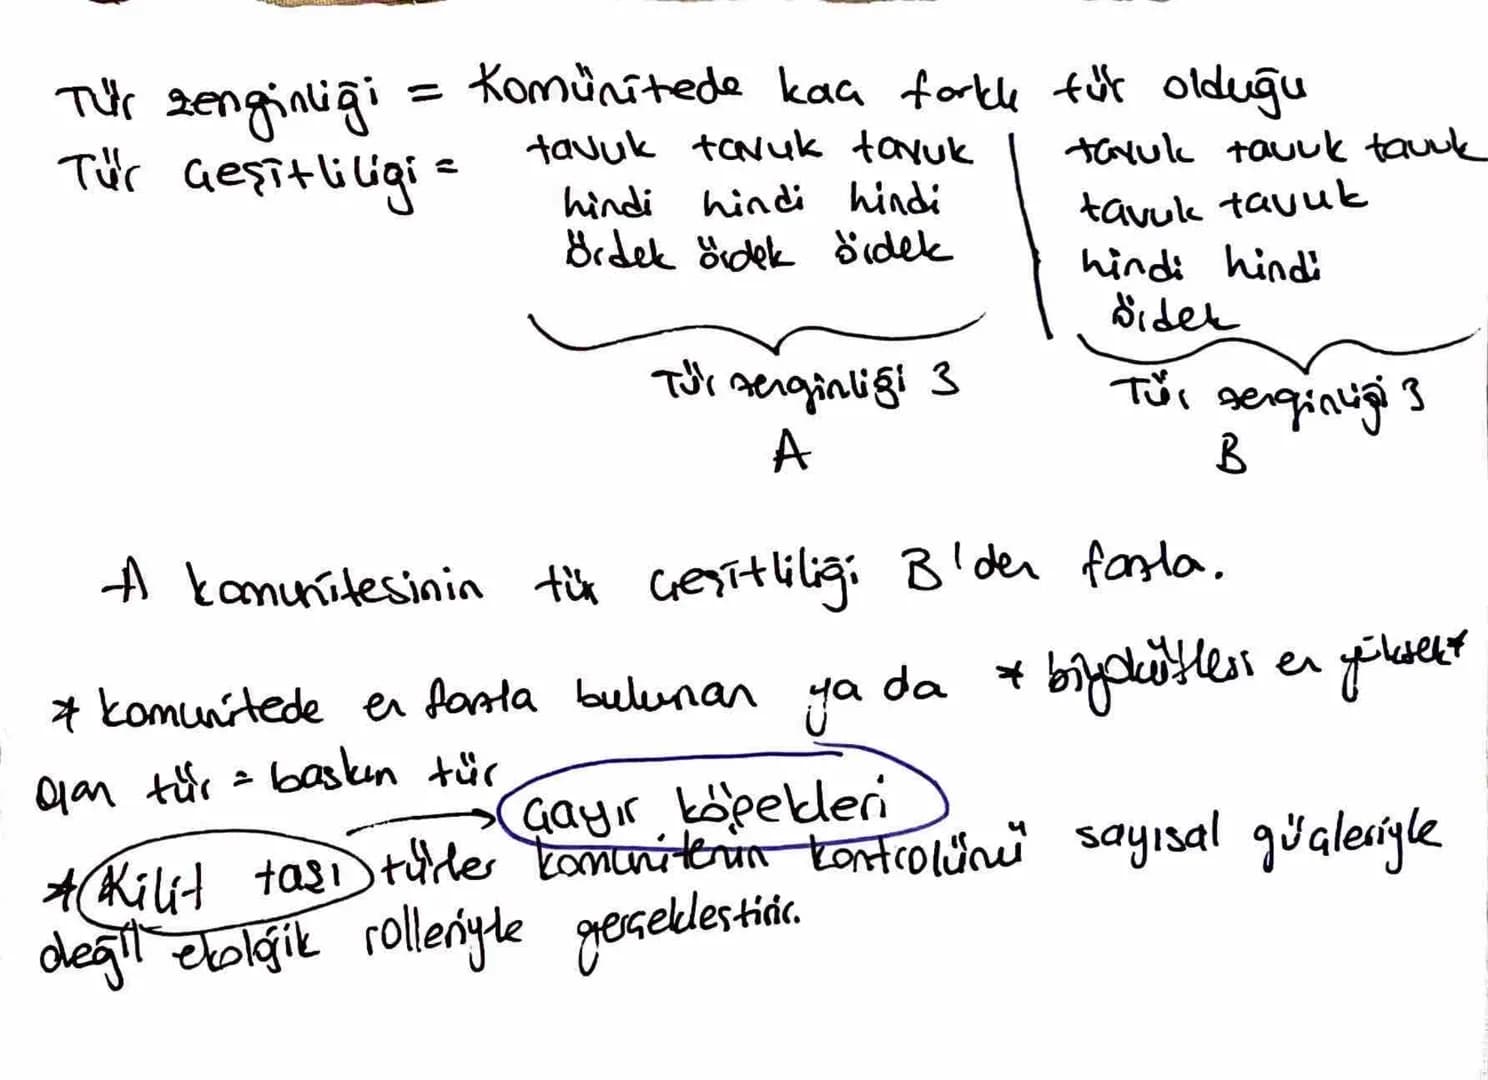 Tür zenginliği = Komünitede kaç farklı tür olduğu
Tür Çeşitliliği =
tavuk tavuk tavuk
hindi hindi hindi
ördek ördek ördek
Tür zenginliği 3
A
tavuk tavuk tavuk
tavuk tavuk
hindi hindi
ördek
Tür zenginliği 3
B
A komunitesinin tür çeşitliliği B'den fazla.
* komunitede en fazla bulunan ya da * biyokütlesi en yüksek*
olan tür = baskın tür
çayır köpekleri
* Kilit taşı türler komunitenin kontrolünü sayısal güçleriyle
değil ekolojik rolleriyle gerçekleştirir.